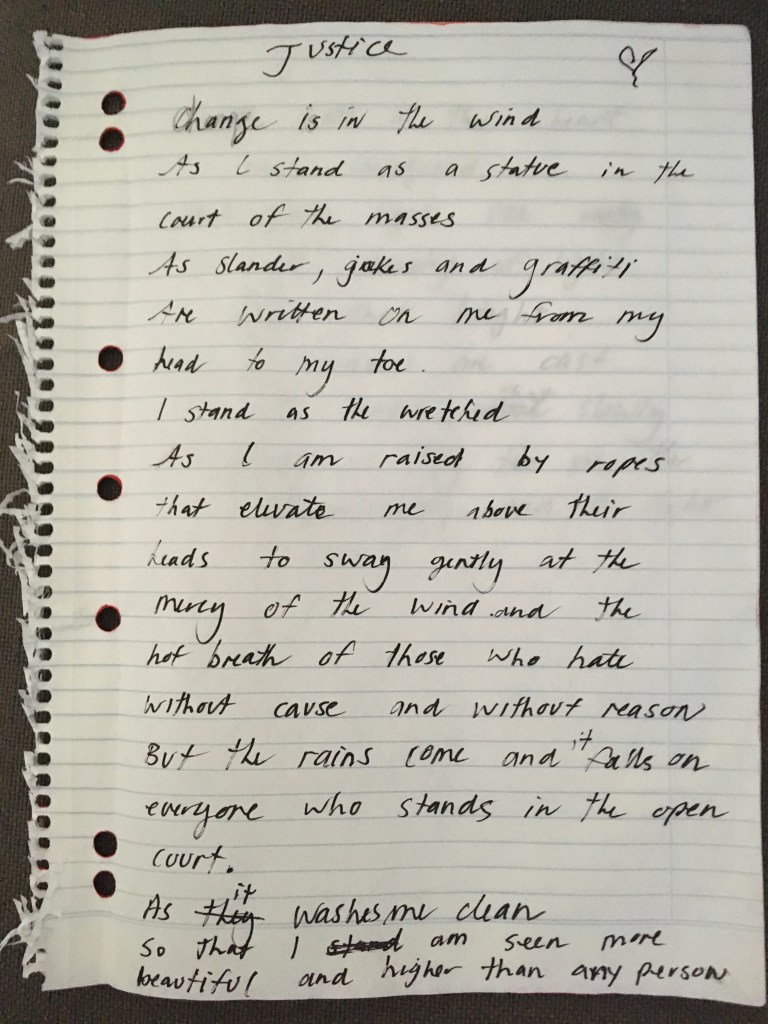 Justice
Change is in the wind
As I stand as a statue in the
court of the masses
As slander, jokes and graffiti
Are written on me from my
head to my toe.
I stand as the wretched
As I am raised by ropes
that elevate me above their
heads to sway gently at the
mercy of the wind and the
hot breath of those who hate
without cause and without reason
But the rains come and it falls on
everyone who stands in the open
court.
As it washes me clean
so that I am seen more
beautiful and higher than any person